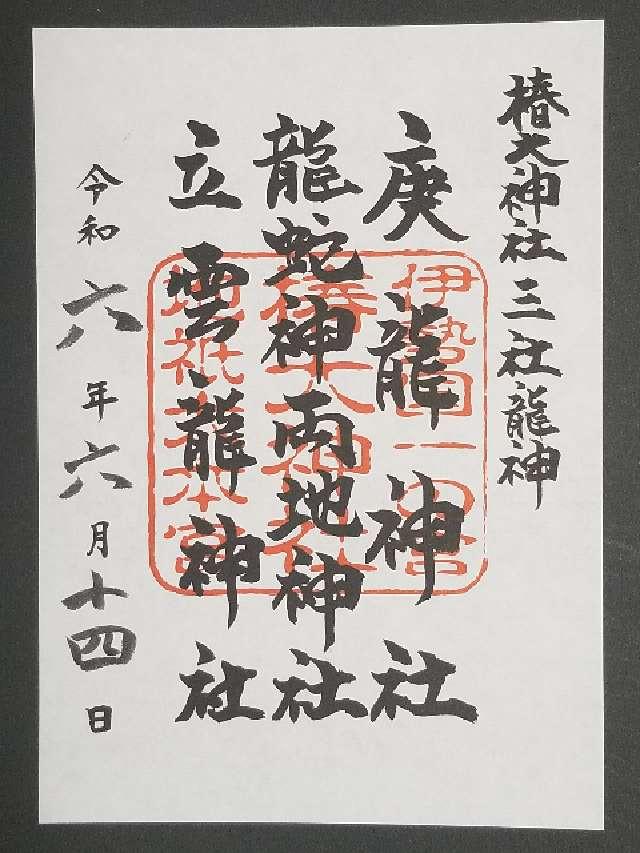 椿大神社三社龍神
庚龍神社
龍蛇神両地神社
立雲龍神社
令和六年六月十四日
伊勢国一の宮
椿大神社
地祇大本宮